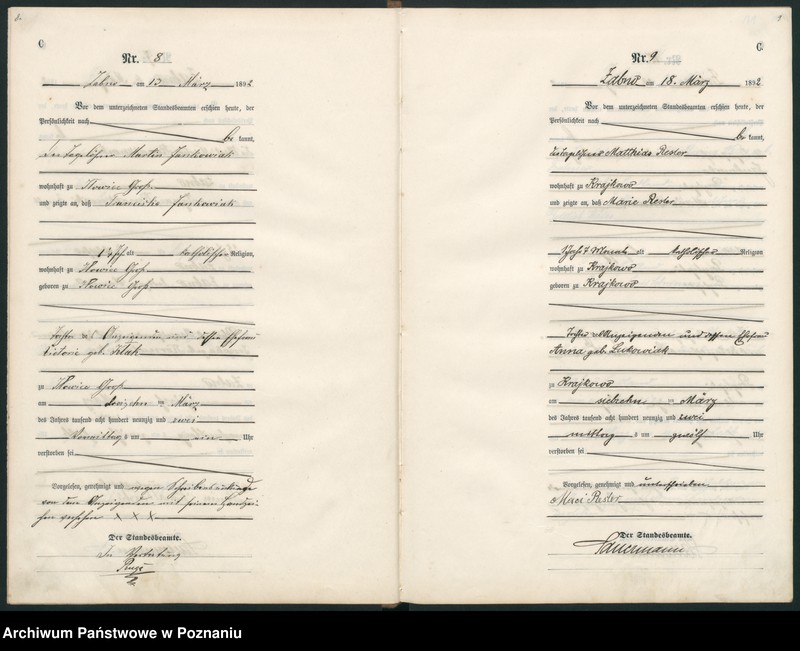 C
Nr. 8
Zabno am 13 März 1892
Vor dem unterzeichneten Standesbeamten erschien heute, der
Persönlichkeit nach
be kannt,
der Tagelöhner Martin Jankowiak
wohnhaft zu Ilowiec Groß
und zeigte an, daß Franciska Jankowiak
alt katholischer Religion,
wohnhaft zu Ilowiec Groß
geboren zu Ilowiec Groß
Tochter des Anzeigenden und dessen Ehefrau
Victorie geb.
zu Ilowiec Groß
am dreizehn ten März
des Jahres tausend acht hundert neunzig und zwei
Vormittags um ein Uhr
verstorben sei
Vorgelesen, genehmigt und wegen Schreibensunkunde
von dem Anzeigenden mit seinem Handzei-
chen versehen X X X
Der Standesbeamte.
In Vertretung
9
C
Nr. 9
Zabno am 18. März 1892
Vor dem unterzeichneten Standesbeamten erschien heute, der
Persönlichkeit nach
be kannt,
der Tagelöhner Matthias Resler
wohnhaft zu Krajkowo
und zeigte an, daß Marie Resler
1 Jahr 7 Monate alt katholischer Religion
wohnhaft zu Krajkowo
geboren zu Krajkowo
Tochter des Anzeigenden und dessen Ehefrau
Anna geb. Lukowiak
zu Krajkowo
am siebzehn ten März
des Jahres tausend acht hundert neunzig und zwei
mittag s um zwölf Uhr
verstorben sei
Vorgelesen, genehmigt und unterschrieben
Maci Resler
Der Standesbeamte.
Archiwum Państwowe w Poznaniu